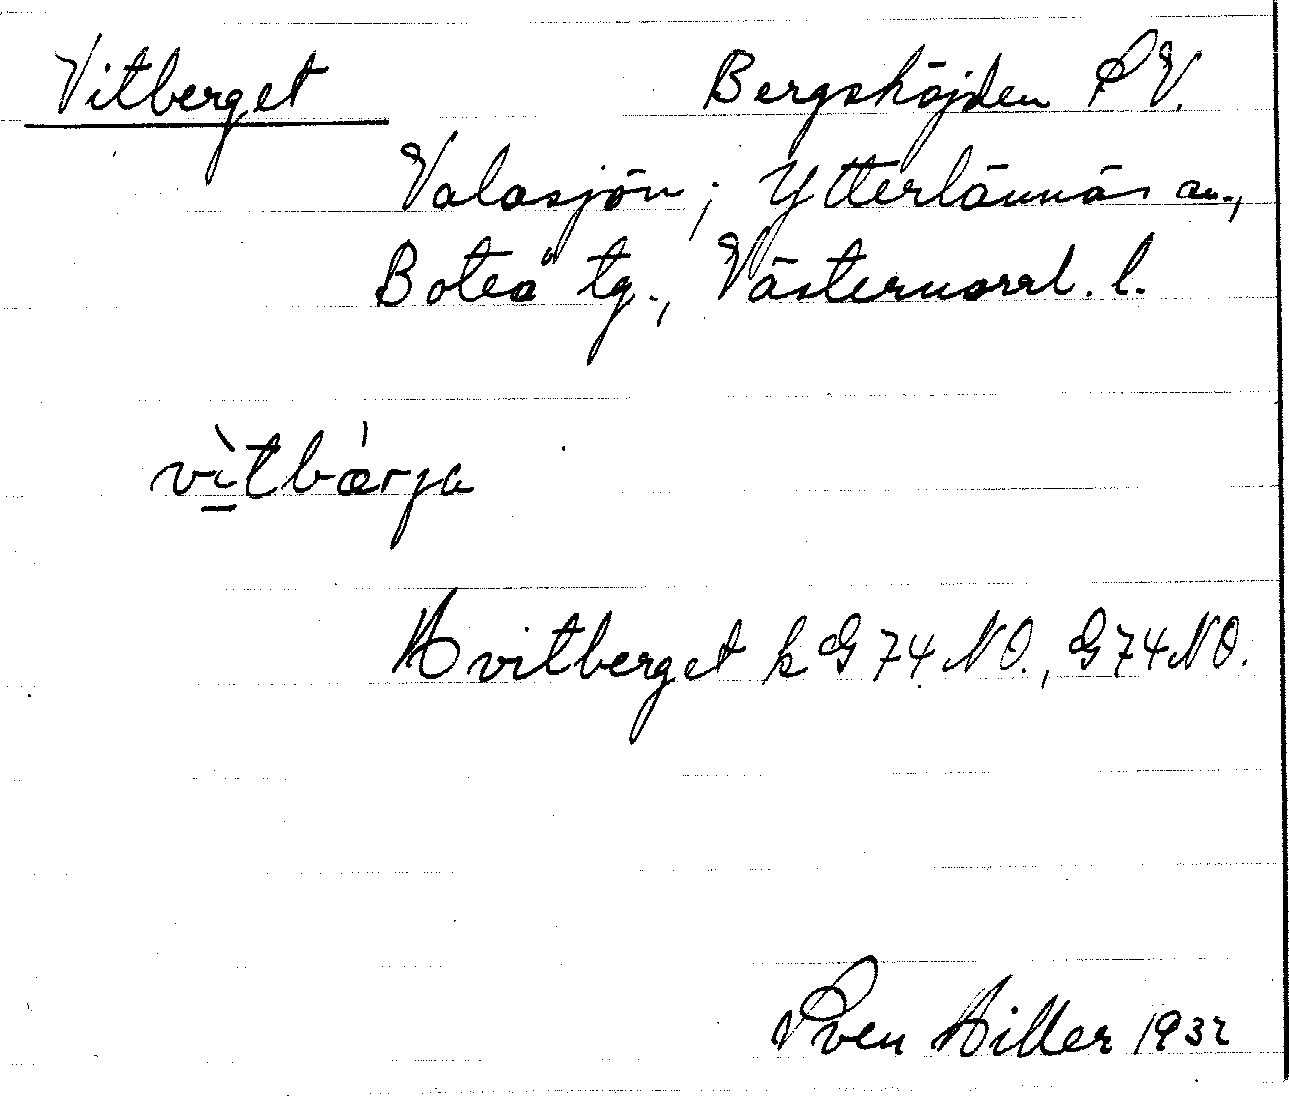 Vitberget Bergshöjden S V.
Valasjön; Ytterlännäs sn.,
Boteå tg., Västernorrl. l.
vìtbárja
Hvitberget k G 74 NO., G74NO.
Sven Hiller 1932